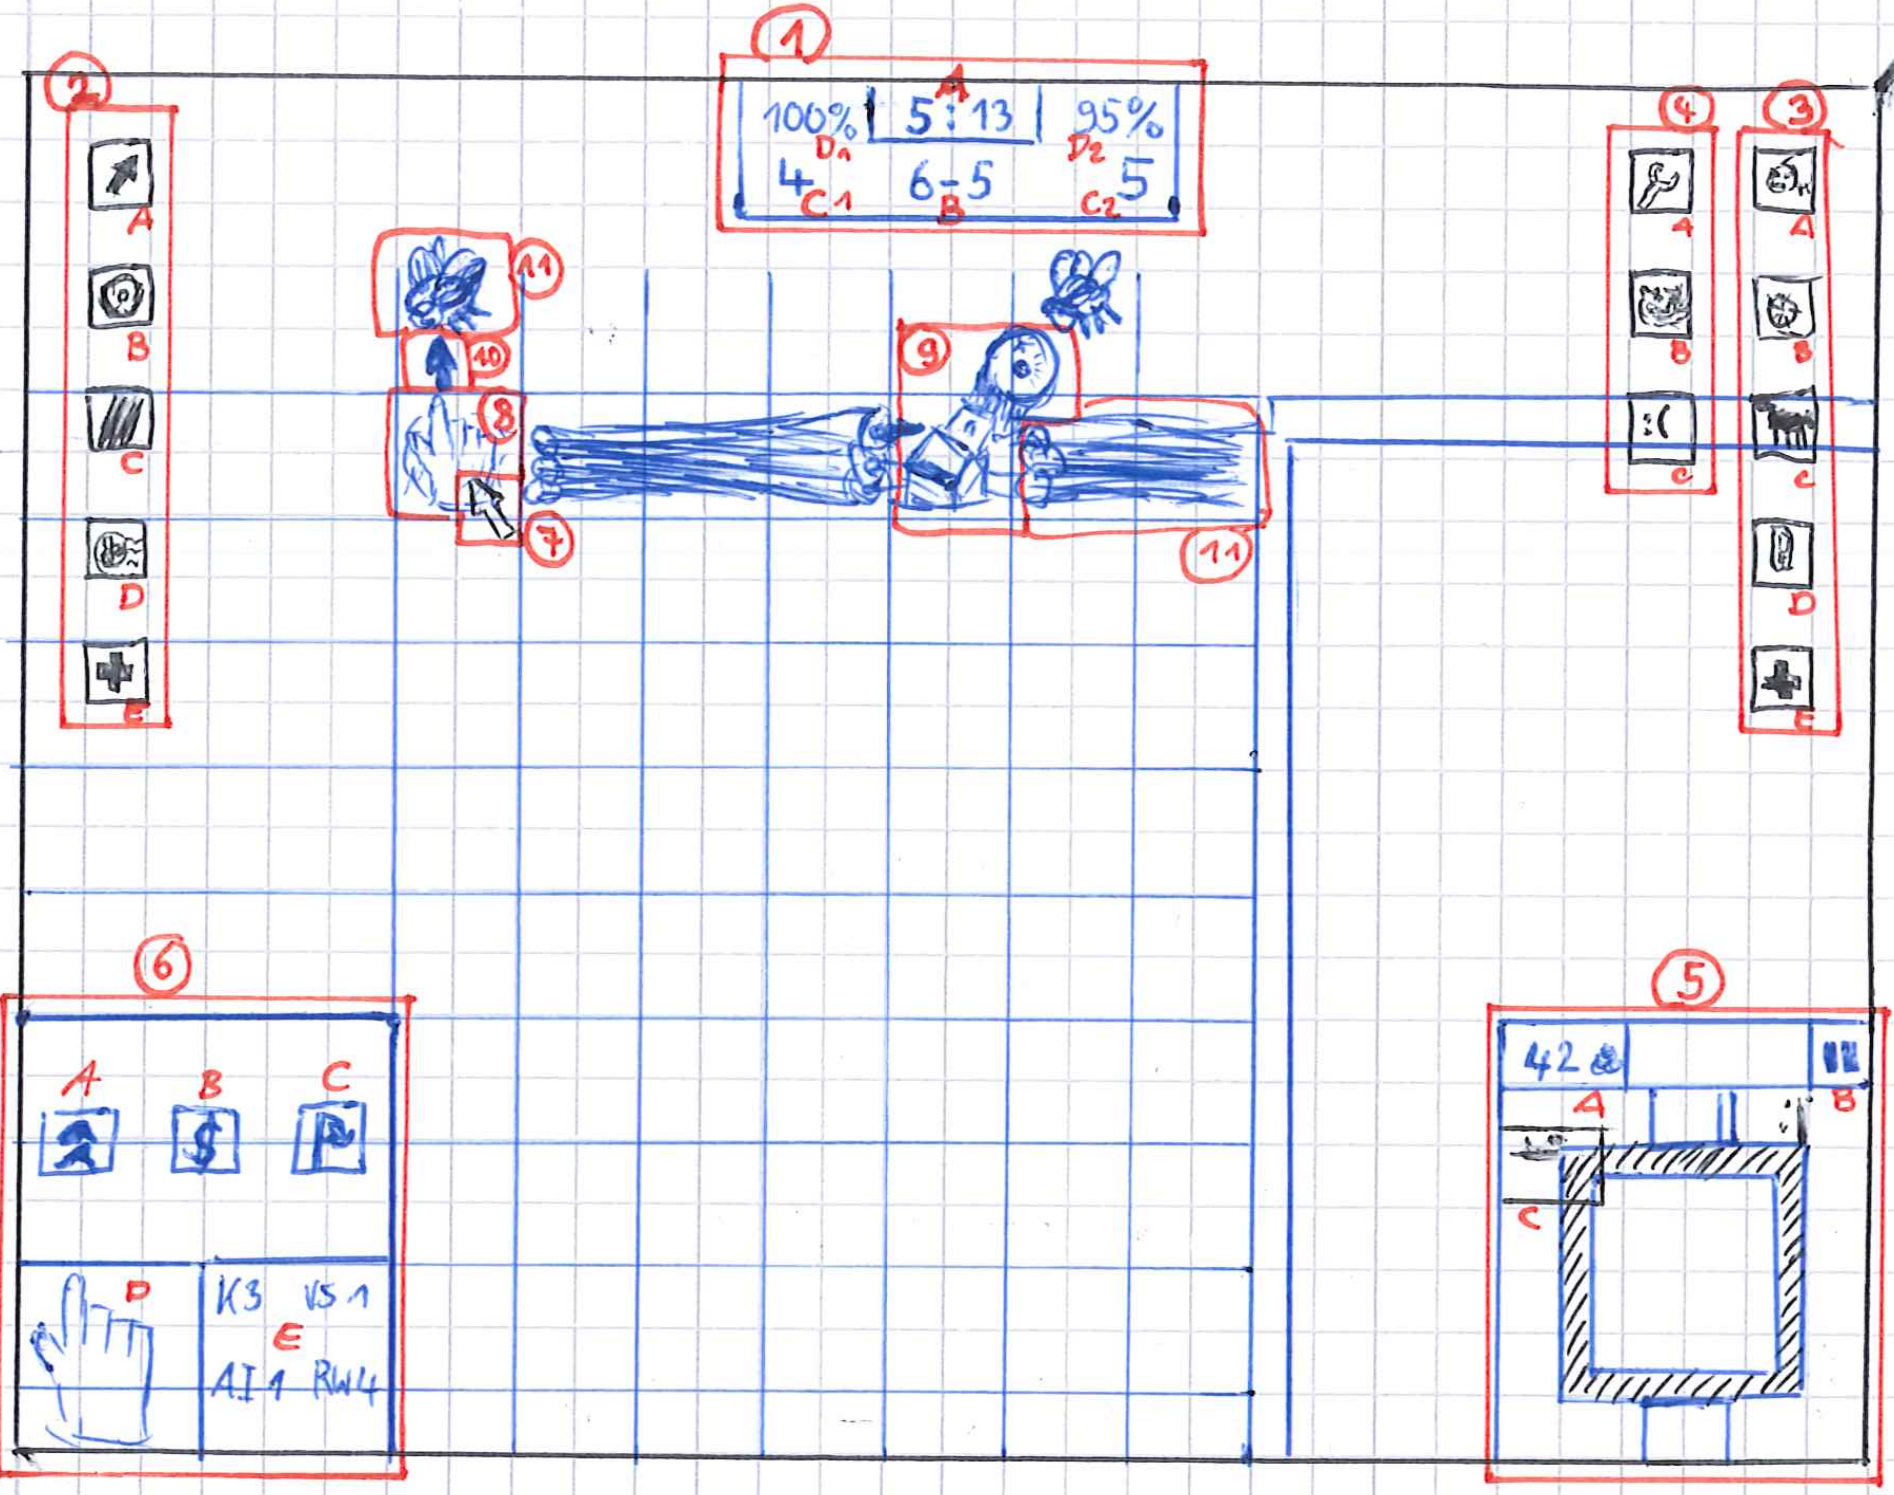 1
A
100% 5:13 95%
D1 D2
4 6-5 5
C1 B C2
2
A
B
C
D
E
4
A
B
:(
C
3
A
B
C
D
E
11
10
8
7
9
11
6
A B C
$ P
D
K3 VS1
E
AI1 RW4
5
42
A B
C